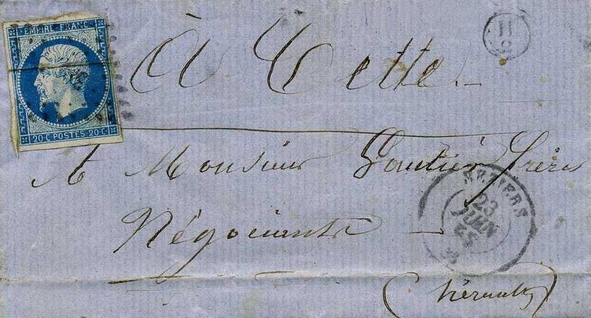 EMPIRE FRANC
20·C POSTES·20·C
à Cette
A Monsieur Gautier frères
Négociants
(hérault)
BEZIERS
23
JUIN
55